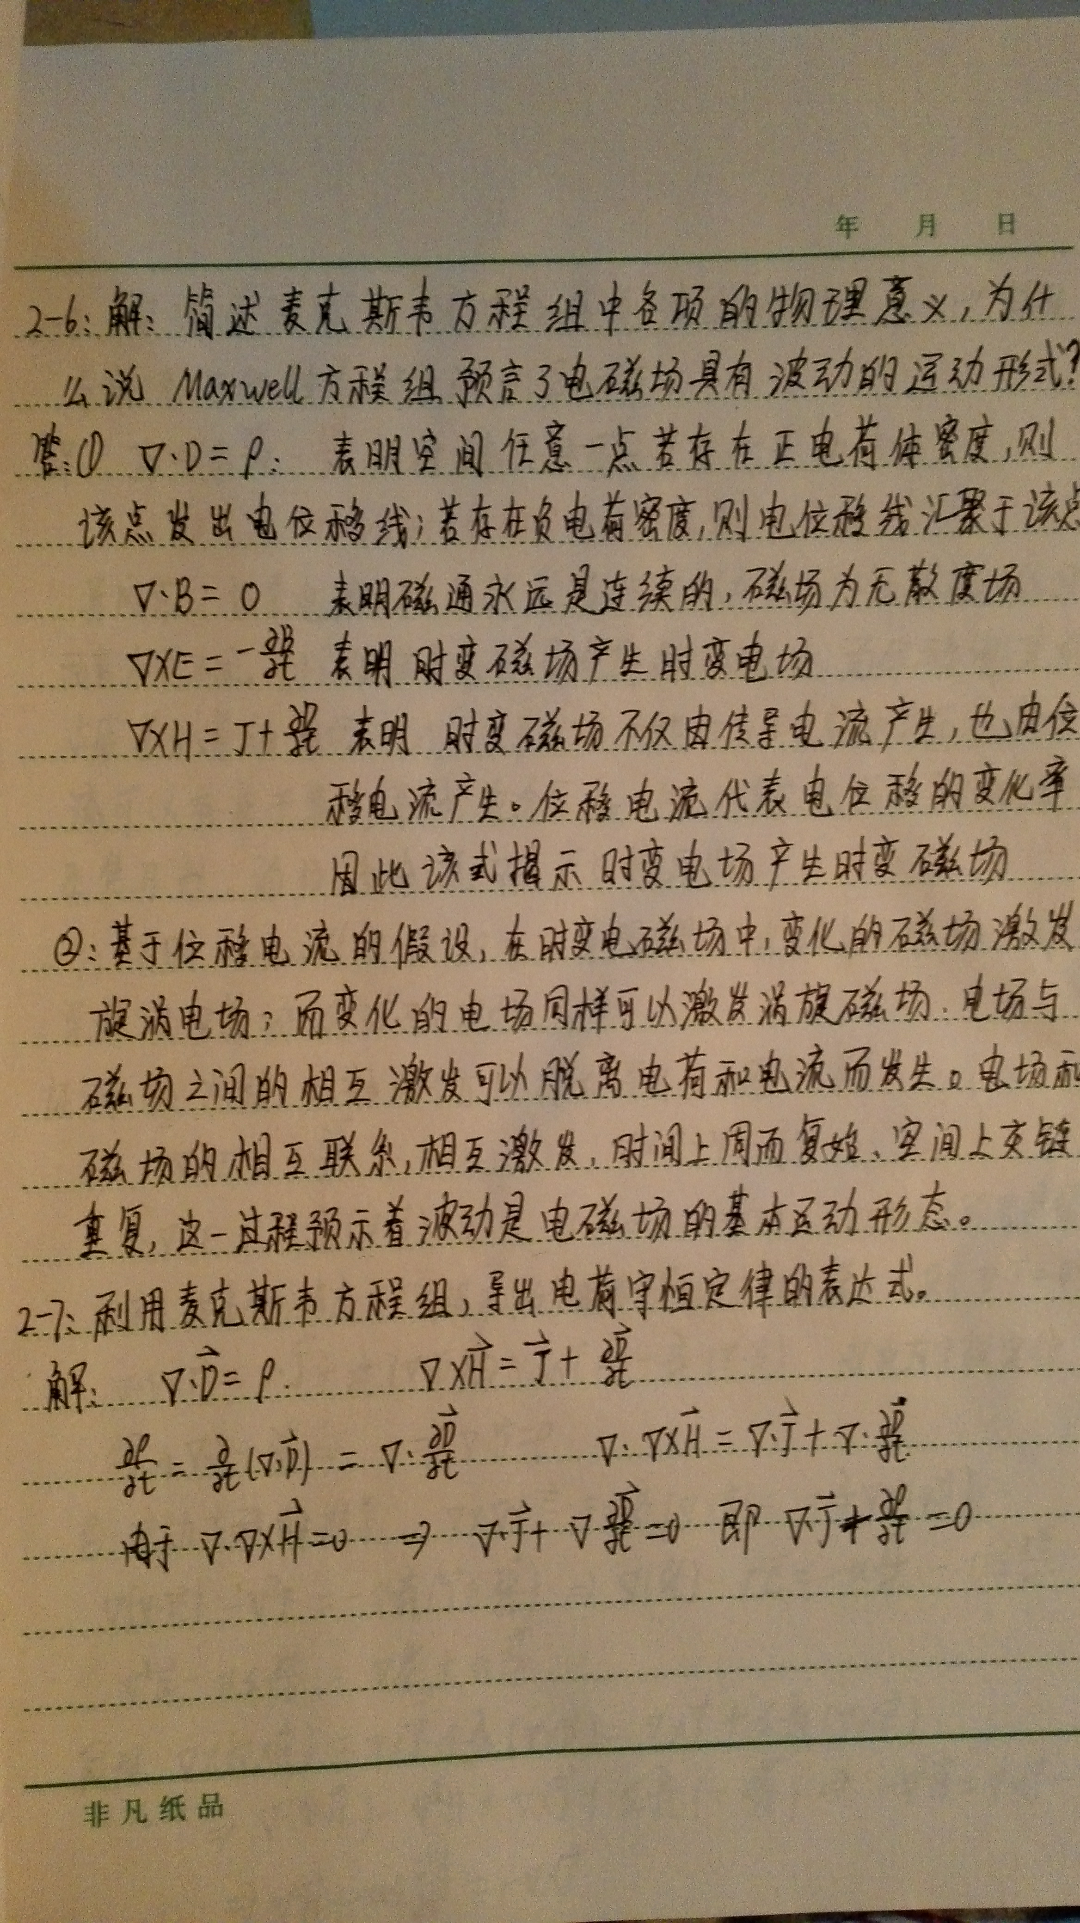 年 月 日
2-6: 解: 简述麦克斯韦方程组中各项的物理意义,为什
么说 Maxwell 方程组预言了电磁场具有波动的运动形式?
答:① ∇·D=ρ: 表明空间任意一点若存在正电荷体密度,则
该点发出电位移线;若存在负电荷密度,则电位移线汇聚于该点
∇·B=0 表明磁通永远是连续的,磁场为无散度场
∇×E=-∂B/∂t 表明时变磁场产生时变电场
∇×H=J+∂D/∂t 表明 时变磁场不仅由传导电流产生,也由位
移电流产生。位移电流代表电位移的变化率
因此该式揭示时变电场产生时变磁场
②:基于位移电流的假设,在时变电磁场中,变化的磁场激发
旋涡电场;而变化的电场同样可以激发涡旋磁场.电场与
磁场之间的相互激发可以脱离电荷和电流而发生。电场和
磁场的相互联系,相互激发,时间上周而复始、空间上交链
重复,这一过程预示着波动是电磁场的基本运动形态。
2-7:利用麦克斯韦方程组,导出电荷守恒定律的表达式。
解: ∇·D⃗=ρ. ∇×H⃗=J⃗+∂D⃗/∂t
∂ρ/∂t=∂/∂t(∇·D⃗)=∇·∂D⃗/∂t ∇·∇×H⃗=∇·J⃗+∇·∂D⃗/∂t
由于 ∇·∇×H⃗=0 ⇒ ∇·J⃗+∇∂D⃗/∂t=0 即 ∇·J⃗+∂ρ/∂t=0
非凡纸品